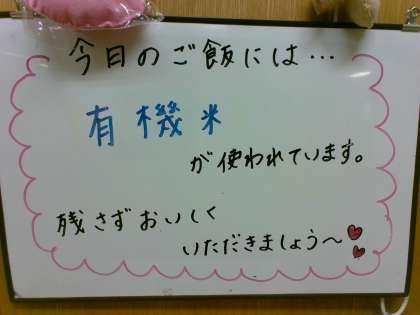 今日のご飯には…
有機米
が使われています。
残さずおいしく
いただきましょう〜